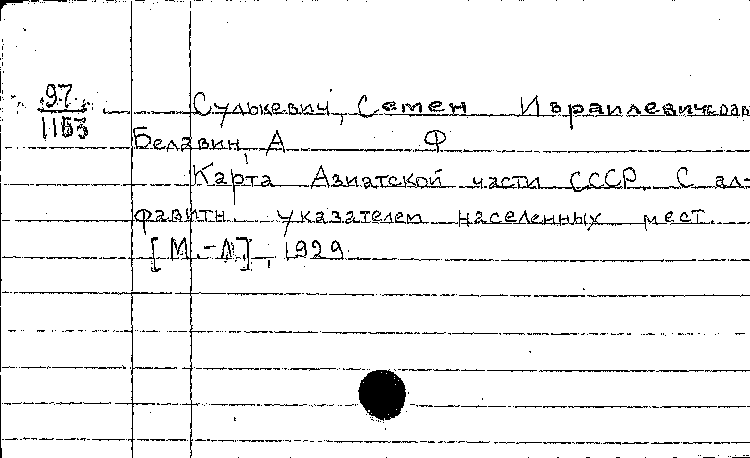 97
1153
Сулькевич, Семен Израилевич
Белавин, А Ф
Карта Азиатской части СССР. С ал-
фавитн. указателем населенных мест.
[М.-Л], 1929.